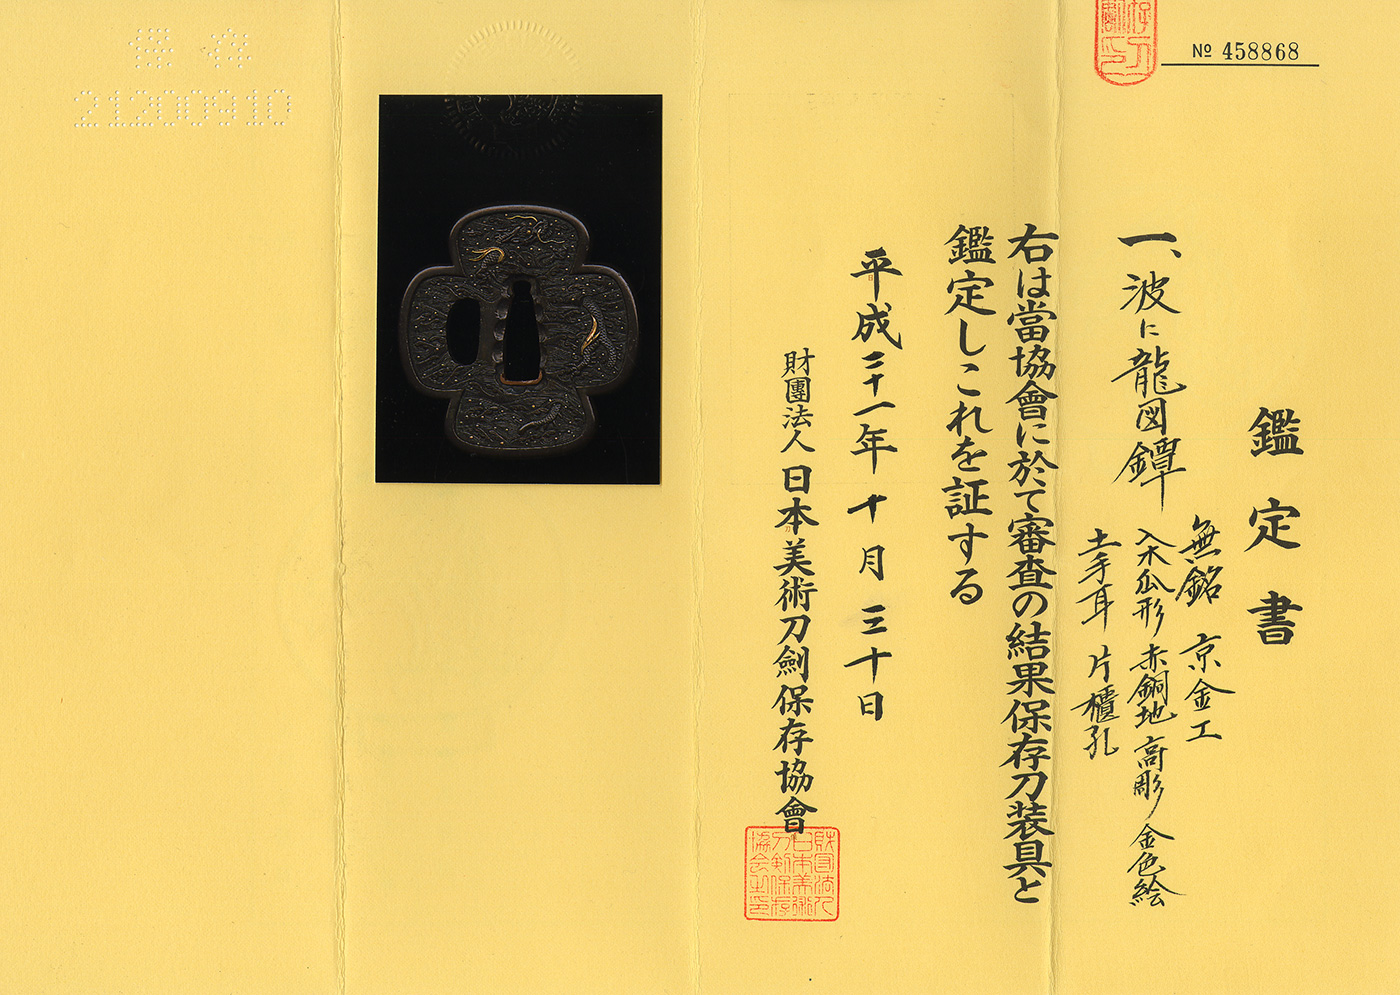 № 458868
鑑定書
一、波に龍図鐔
無銘 京金工
入木瓜形 赤銅地 高彫 金色絵
土手耳 片櫃孔
右は當協會に於て審査の結果保存刀装具と
鑑定しこれを証する
平成二十一年十月三十日
財團法人 日本美術刀劍保存協會
財団法人
日本美術
刀剣保存
協会之印
保存
21200910